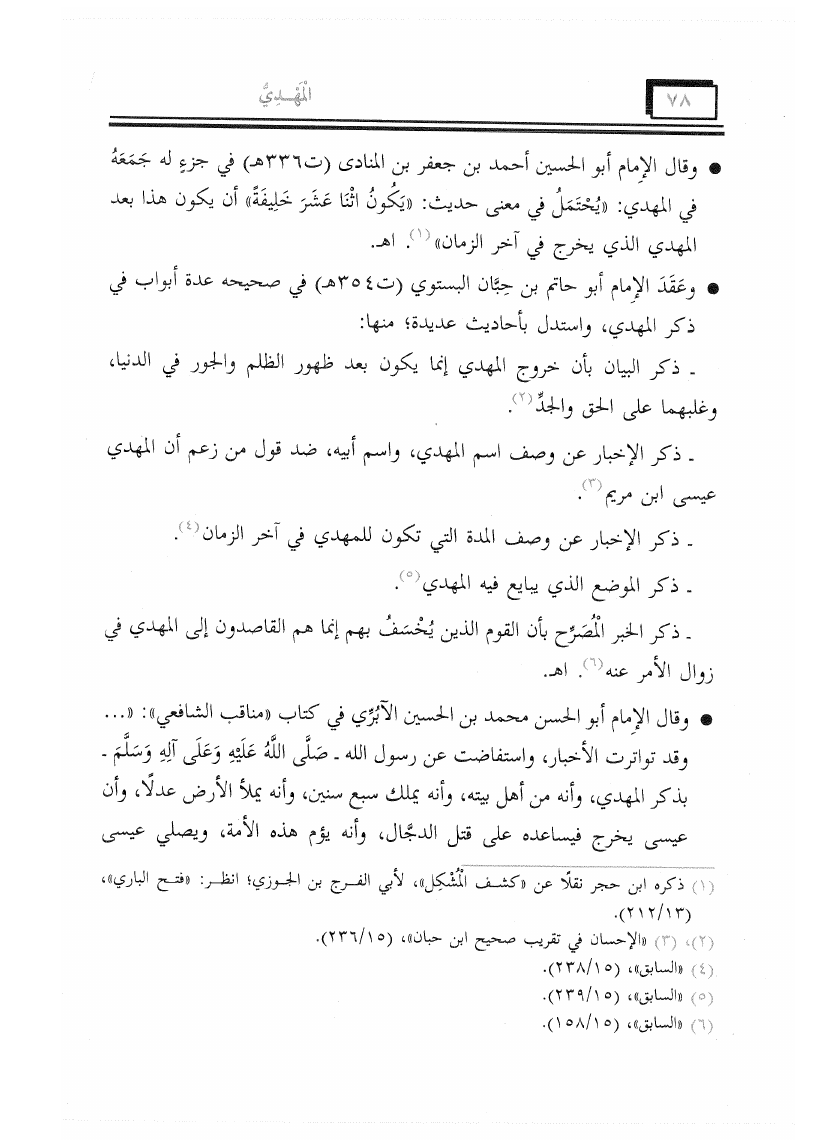 ٧٨
الْمَهْـدِيُّ
● وقال الإمام أبو الحسين أحمد بن جعفر بن المنادى (ت٣٣٦هـ) في جزءٍ له جَمَعَهُ
في المهدي: «يُحْتَمَلُ في معنى حديث: «يَكُونُ اثْنَا عَشَرَ خَلِيفَةً» أن يكون هذا بعد
المهدي الذي يخرج في آخر الزمان»(١). اهـ.
● وعَقَدَ الإمام أبو حاتم بن حِبَّان البستوي (ت٣٥٤هـ) في صحيحه عدة أبواب في
ذكر المهدي، واستدل بأحاديث عديدة؛ منها:
ـ ذكر البيان بأن خروج المهدي إنما يكون بعد ظهور الظلم والجور في الدنيا،
وغلبهما على الحق والجدِّ(٢).
ـ ذكر الإخبار عن وصف اسم المهدي، واسم أبيه، ضد قول من زعم أن المهدي
عيسى ابن مريم(٣).
ـ ذكر الإخبار عن وصف المدة التي تكون للمهدي في آخر الزمان(٤).
ـ ذكر الموضع الذي يبايع فيه المهدي(٥).
ـ ذكر الخبر الْمُصَرِّح بأن القوم الذين يُخْسَفُ بهم إنما هم القاصدون إلى المهدي في
زوال الأمر عنه(٦). اهـ.
● وقال الإمام أبو الحسن محمد بن الحسين الآبُرِّي في كتاب «مناقب الشافعي»: «...
وقد تواترت الأخبار، واستفاضت عن رسول الله ـ صَلَّى اللَّهُ عَلَيْهِ وَعَلَى آلِهِ وَسَلَّمَ ـ
بذكر المهدي، وأنه من أهل بيته، وأنه يملك سبع سنين، وأنه يملأ الأرض عدلًا، وأن
عيسى يخرج فيساعده على قتل الدجَّال، وأنه يؤم هذه الأمة، ويصلي عيسى
(١) ذكره ابن حجر نقلًا عن «كشف الْمُشْكِل»، لأبي الفرج بن الجوزي؛ انظر: «فتح الباري»،
(٢١٢/١٣).
(٢)، (٣) «الإحسان في تقريب صحيح ابن حبان»، (٢٣٦/١٥).
(٤) «السابق»، (٢٣٨/١٥).
(٥) «السابق»، (٢٣٩/١٥).
(٦) «السابق»، (١٥٨/١٥).